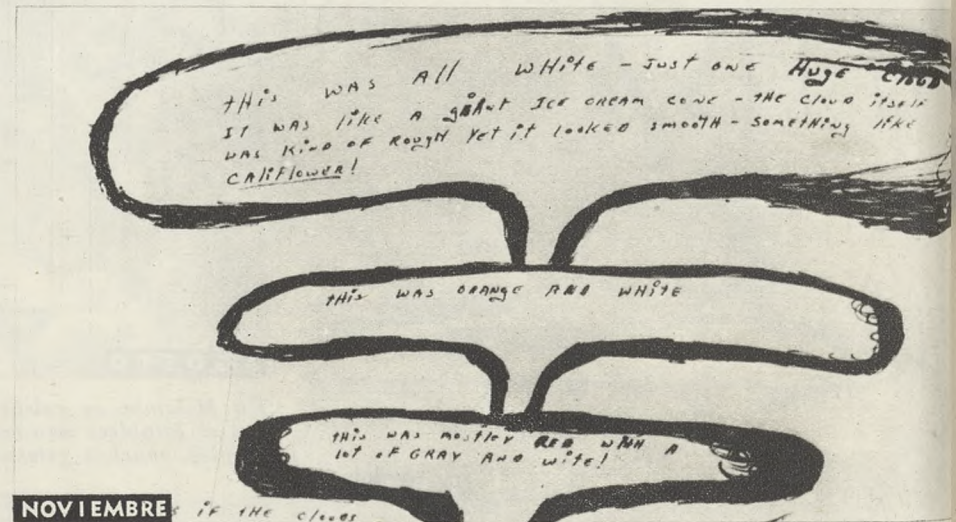 this was All white - just one Huge cloud
It was like a giant Ice cream cone - the cloud itself
was kind of rough yet it looked smooth - something like
califlower!
this was orange and white
this was mostley red with a
lot of gray and wite!
NOVIEMBRE
if the clouds